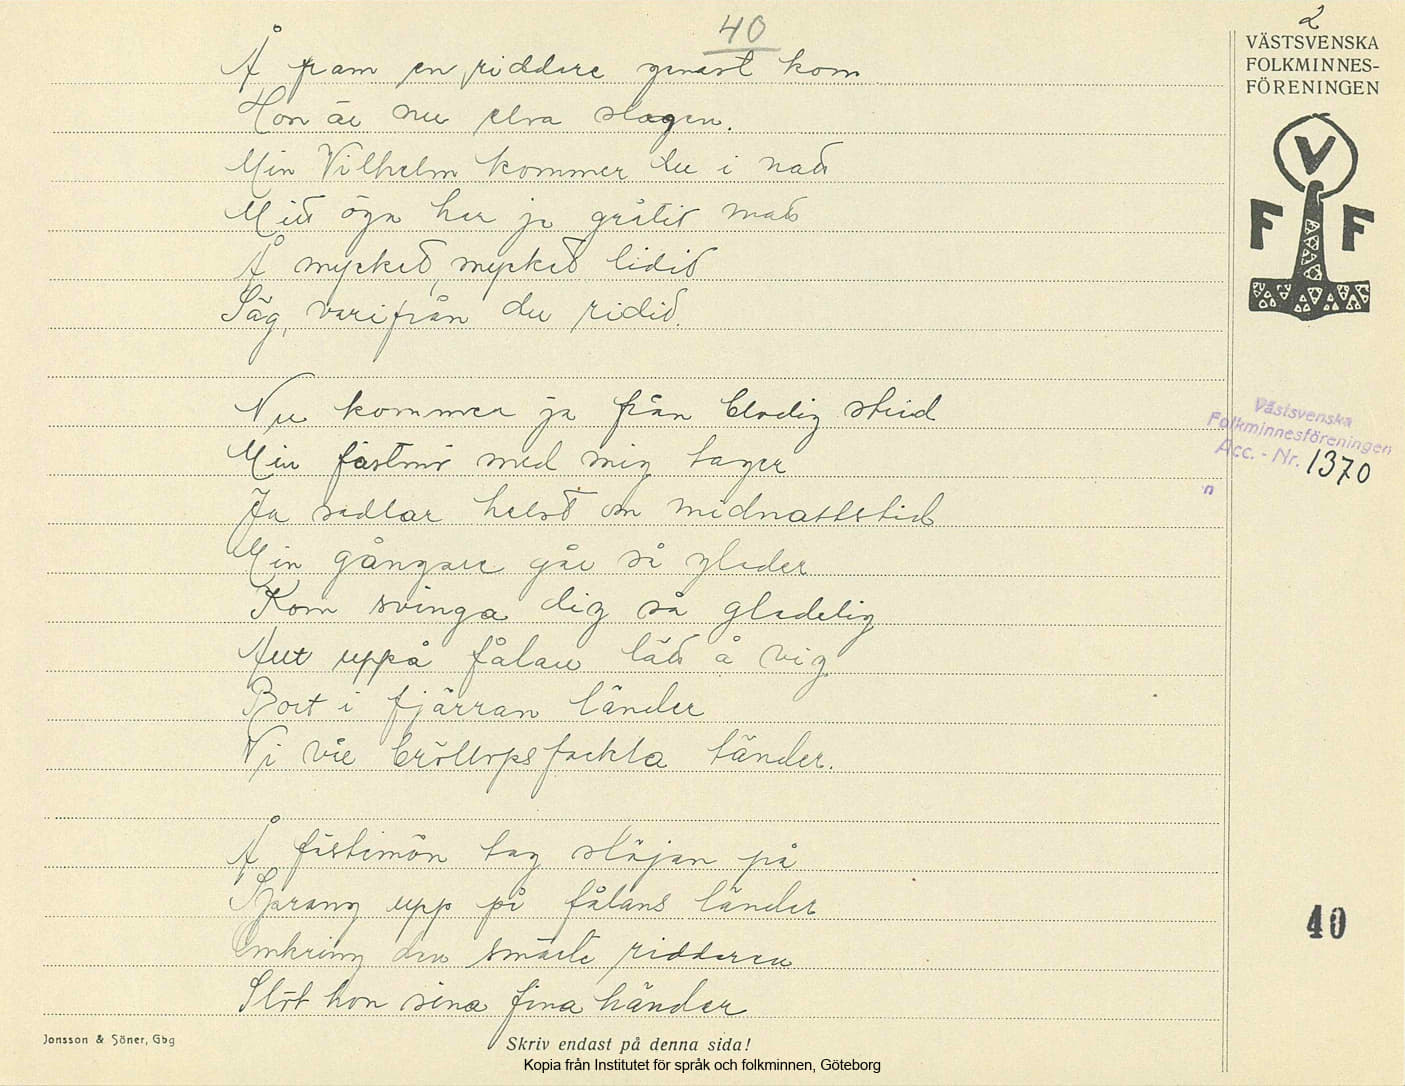 40
2
VÄSTSVENSKA
FOLKMINNES-
FÖRENINGEN
V
F F
Å fram en riddare genast kom
Hon är nu elva slagen.
Min Vilhelm kommer du i natt
Mitt öga har ja gråtit matt
Å mycket, mycket lidit
Säg, varifrån du ridit.
Nu kommer ja från blodig strid
Min fästmö med mig tager
Ja sadlar helst om midnattstid
Min gångare går så glader
Kom svinga dig så gladelig
Hut uppå fålan lätt å vig
Bort i fjärran länder
Vi vår bröllopsfackla tänder.
Västsvenska
Folkminnesföreningen
Acc. - Nr. 1370
Å fästimön tag slöjan på
Sprang upp på fålans länder
Omkring den smärte riddaren
Slöt hon sina fina händer
40
Jonsson & Söner, Gbg
Skriv endast på denna sida!
Kopia från Institutet för språk och folkminnen, Göteborg